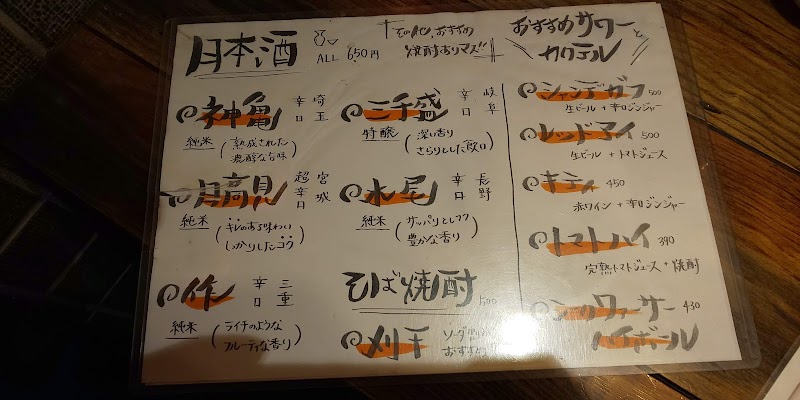 日本酒
ALL 650円
その他、おすすめ
焼酎ありマス!!
神亀
埼玉
辛口
純米
熟成された
濃醇な旨味
三千盛
岐阜
辛口
特醸
深い香り
さらりとした飲口
日高見
宮城
超辛口
純米
キレのある味わい
しっかりしたコク
水尾
長野
辛口
純米
サッパリとしてフク
豊かな香り
作
三重
辛口
純米
ライチのような
フルーティな香り
そば焼酎 500
刈干
ソーダ割
おすすめ
おすすめサワーと
カクテル
シャンデガフ 500
生ビール + 辛口ジンジャー
レッドアイ 500
生ビール + トマトジュース
キティ 450
赤ワイン + 辛口ジンジャー
トマトハイ 390
完熟トマトジュース + 焼酎
シークワァーサー 430
ハイボール